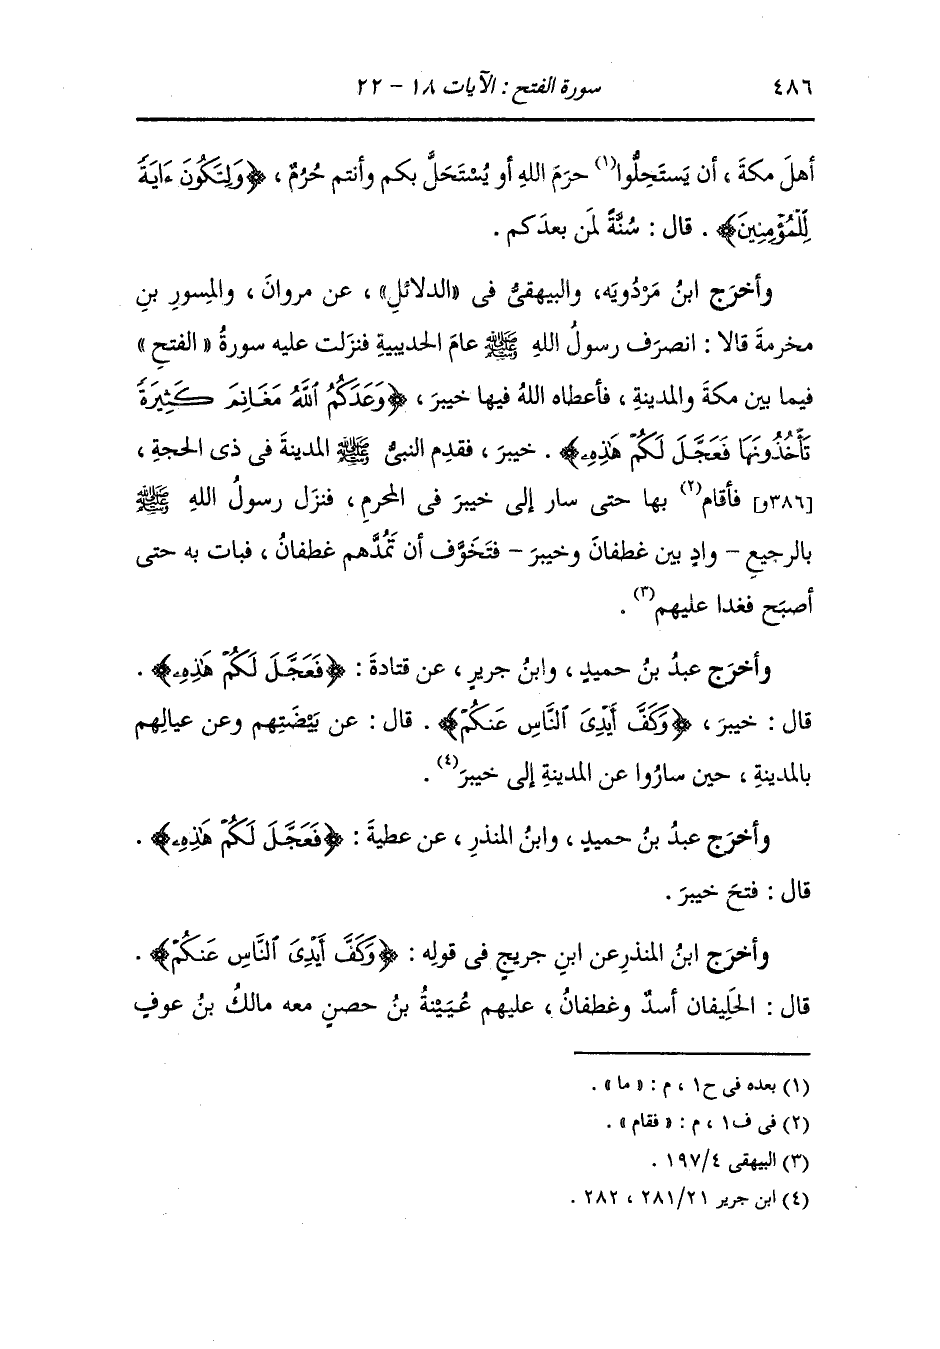 ٤٨٦ سورة الفتح : الآيات ١٨ - ٢٢
أهلَ مكةَ ، أن يَستَحِلُّوا(١) حرَمَ اللهِ أو يُسْتَحَلَّ بكم وأنتم حُرُمٌ ، ﴿وَلِتَكُونَ ءَايَةً
لِّلْمُؤْمِنِينَ﴾ . قال : سُنَّةً لمَن بعدَكم .
وأخرَج ابنُ مَرْدُويَه، والبيهقىُّ فى «الدلائلِ» ، عن مروانَ ، والمِسورِ بنِ
مخرمةَ قالا : انصرَف رسولُ اللهِ ﷺ عامَ الحديبيةِ فنزَلت عليه سورةُ « الفتحِ »
فيما بين مكةَ والمدينةِ ، فأعطاه اللهُ فيها خيبرَ ، ﴿وَعَدَكُمُ ٱللَّهُ مَغَانِمَ كَثِيرَةً
تَأْخُذُونَهَا فَعَجَّلَ لَكُمْ هَٰذِهِۦ﴾ . خيبرَ ، فقدِم النبىُّ ﷺ المدينةَ فى ذى الحجةِ ،
[٣٨٦و] فأقام(٢) بها حتى سار إلى خيبرَ فى المحرمِ ، فنزَل رسولُ اللهِ ﷺ
بالرجيعِ - وادٍ بين غطفانَ وخيبرَ - فتَخَوَّف أن تَمُدَّهم غطفانُ ، فبات به حتى
أصبَح فغدا عليهم(٣) .
وأخرَج عبدُ بنُ حميدٍ ، وابنُ جريرٍ ، عن قتادةَ : ﴿فَعَجَّلَ لَكُمْ هَٰذِهِۦ﴾ .
قال : خيبرَ ، ﴿وَكَفَّ أَيْدِىَ ٱلنَّاسِ عَنكُمْ﴾ . قال : عن بَيْضَتِهم وعن عيالِهم
بالمدينةِ ، حين سارُوا عن المدينةِ إلى خيبرَ(٤) .
وأخرَج عبدُ بنُ حميدٍ ، وابنُ المنذرِ ، عن عطيةَ : ﴿فَعَجَّلَ لَكُمْ هَٰذِهِۦ﴾ .
قال : فتحَ خيبرَ .
وأخرَج ابنُ المنذرِعن ابنِ جريجٍ فى قولِه : ﴿وَكَفَّ أَيْدِىَ ٱلنَّاسِ عَنكُمْ﴾ .
قال : الحَلِيفان أسدٌ وغطفانُ ، عليهم عُيَيْنةُ بنُ حصنٍ معه مالكُ بنُ عوفٍ
(١) بعده فى ح١ ، م : « ما » .
(٢) فى ف١ ، م : « فقام » .
(٣) البيهقى ١٩٧/٤ .
(٤) ابن جرير ٢٨١/٢١ ، ٢٨٢ .